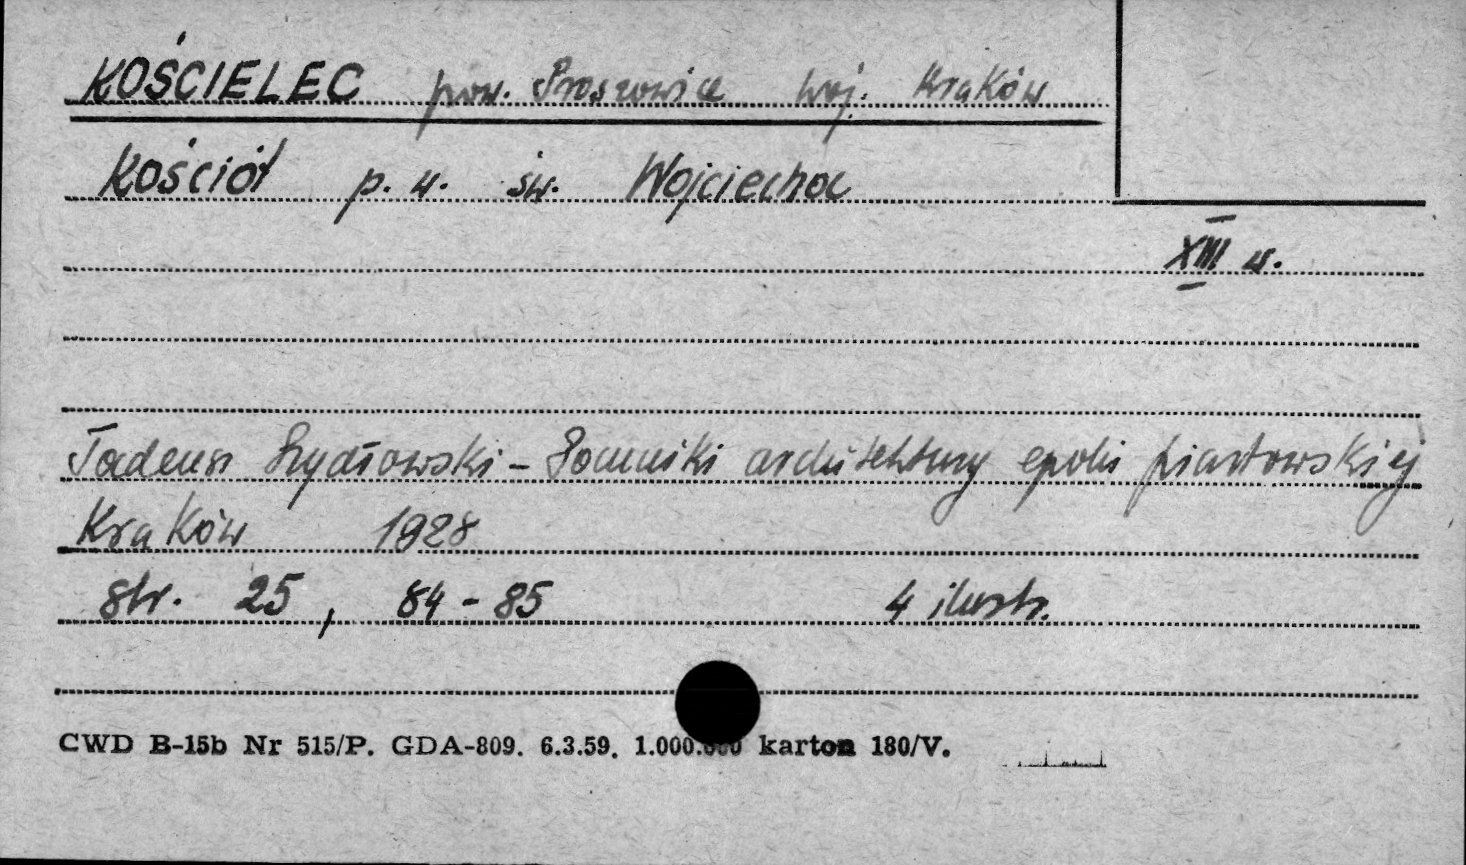 KOŚCIELEC pow. Proszowice woj. Kraków
Kościół p. w. św. Wojciecha
XIII w.
Tadeusz Szydłowski - Pomniki architektury epoki piastowskiej
Kraków 1928
str. 25, 84-85 4 ilustr.
CWD B-15b Nr 515/P. GDA-809. 6.3.59. 1.000.000 karton 180/V.